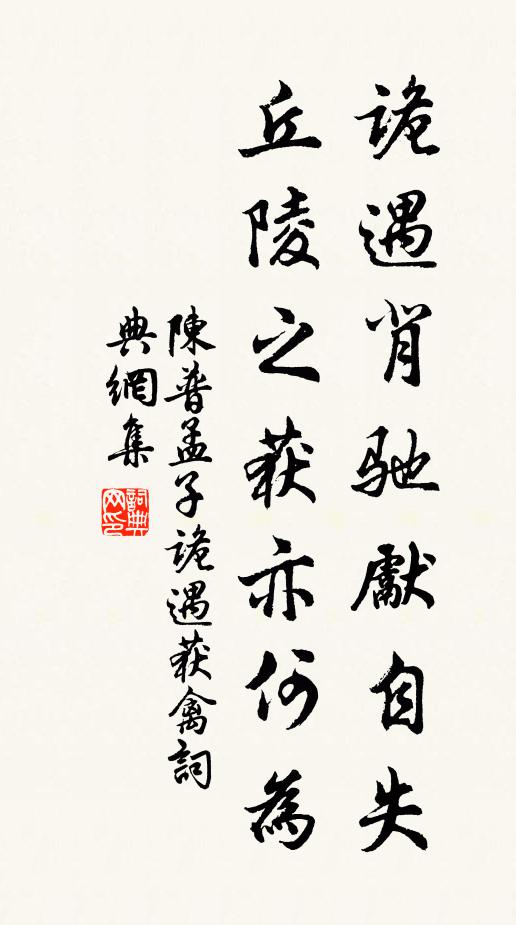 詭遇背馳獻自失
丘陵之获亦何為
陳普孟子詭遇获禽詞
典網集
詞典網印